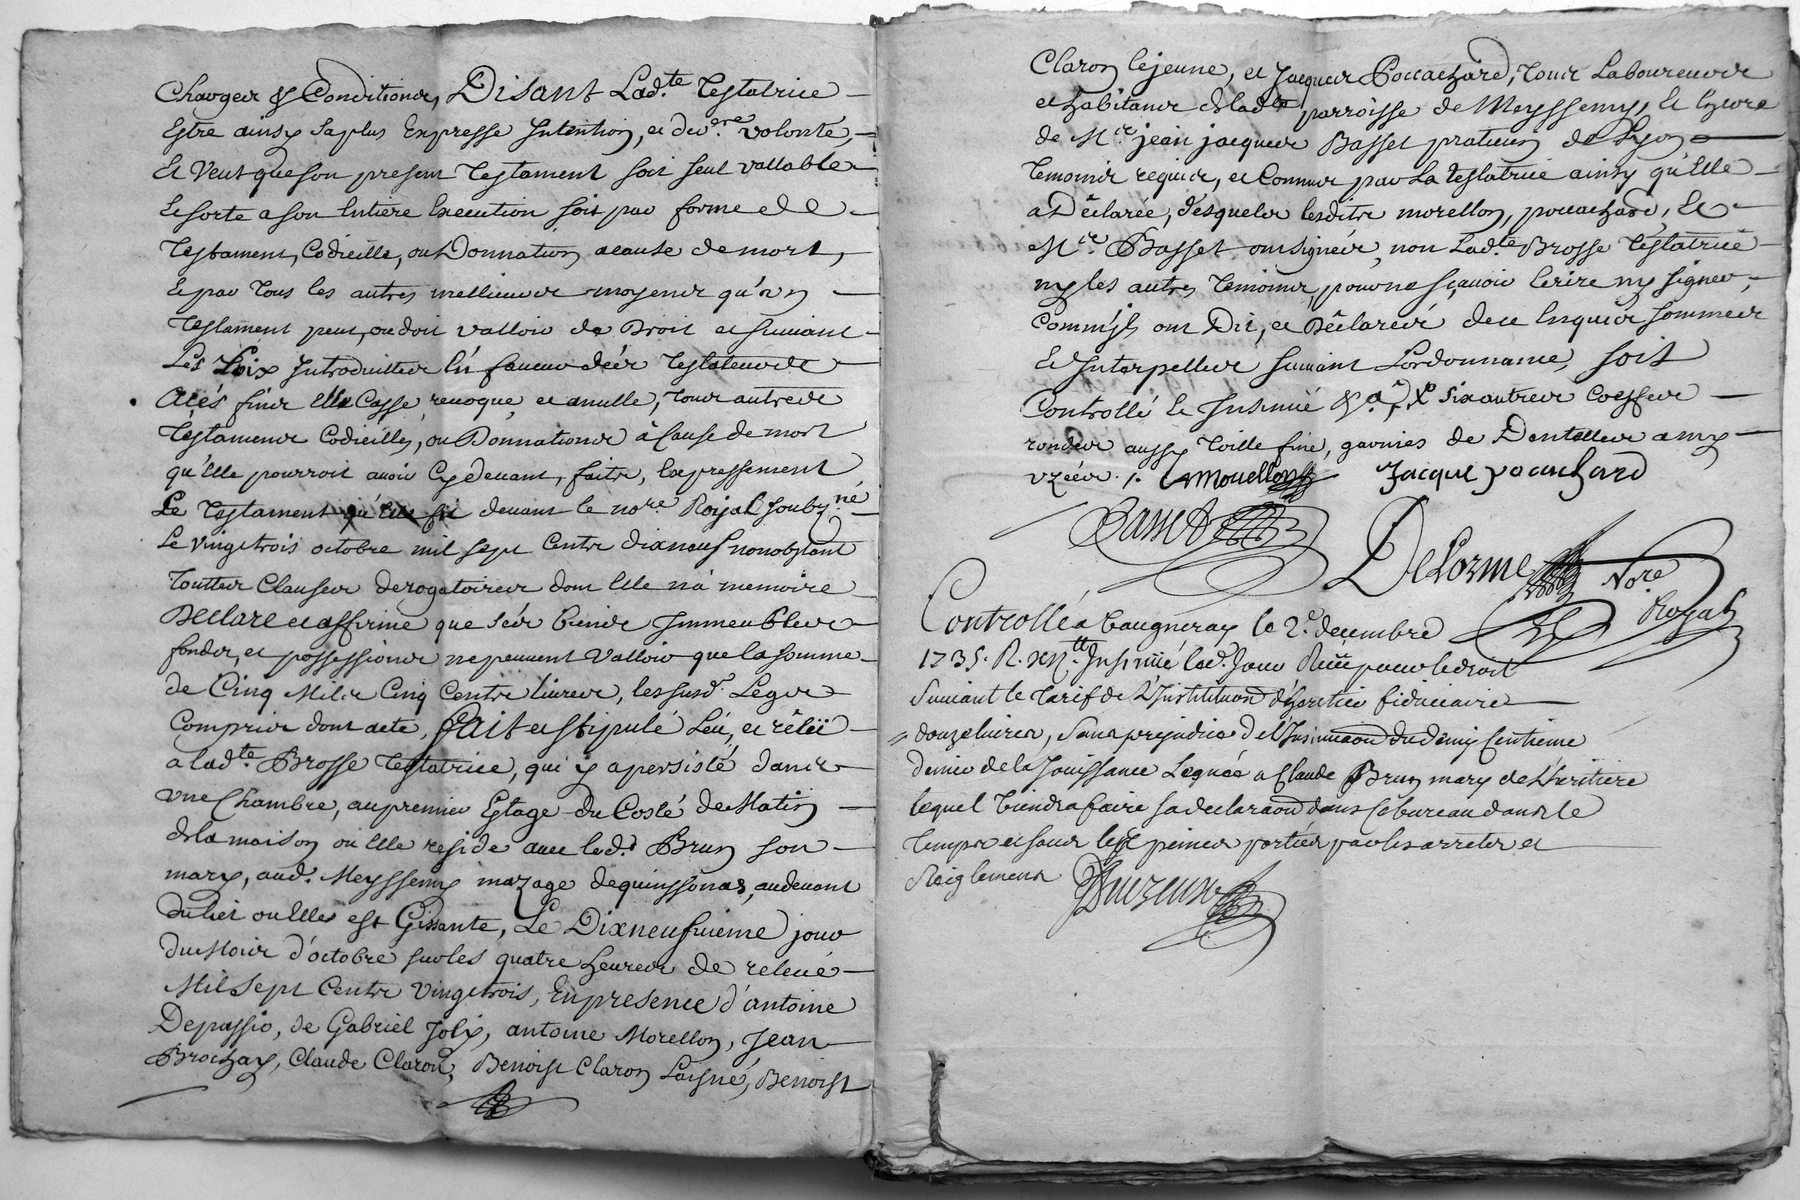 Charges & Conditions, Disant Lad.te Testatrice
Estre ainsy sa plus Expresse Intention, et der.re volonté,
Et Veut que son present Testament soit seul vallable
Et sorte a son Entiere Execution soit par forme de
Testament, Codicille, ou Donnation acause de mort,
Et par tous les autres mellieurs moyens qu'un
Testament peut, ou doit valloir de Droit et suivant
Les Loix Introduittes En faveur des Testateurs
A ces fins Elle Casse, revoque, et anulle, tous autres
Testaments Codicilles, ou Donnations à Cause de mort
qu'Elle pourroit avoir Cy devant, faits, Expressement
Le Testament qu'elle fit devant le no.re Royal soubz.né
Le vingt trois octobre mil sept Cents dixneuf nonobstant
touttes Clauses derogatoires dont Elle n'a memoire
Declare et affirme que ses Biens Immeubles
fonds, et possessions ne peuvent Valloir que la somme
de Cinq Mil Cinq Cents Livres, les susd. Legs
Compris dont acte, fait et stipulé Leu, et reluï
a lad.te Brosse Testatrice, qui y a persisté dans
vne Chambre, au premier Estage du Costé de Matin
de la maison ou Elle reside avec led. Brun son
mary, aud. Meyssemy mazage de quinssonas, au devant
du liet ou Elle est Gissante, Le Dixneufvieme jour
du Mois d'octobre sur les quatre heures de relevé
Mil Sept Cents Vingt trois, En presence d'antoine
Depassio, de Gabriel Joly, antoine Morellon, Jean
Brochay, Claude Claron, Benoist Claron Laisné, Benoist
Claron le jeune, et Jacques Poccachard, tous Laboureurs
et habitans de lad.te parroisse de Meyssemy, Et Encore
de M.re jean jacques Basset praticien de Lyon
Temoins requis, et Connus par La testatrice ainsy qu'Elle
a Déclarée, desquels lesdits morellon, pocachard, Et
M.re Basset ont signés, non Lad.te Brosse Testatrice
ny les autres Temoins, pour ne sçavoir Ecrire ny signer,
Comm'jls ont Dit, et Déclarés de ce Enquis sommes
Et Interpelles suivant L'ordonnance, soit
Controllé Et Insinué &.a, X six autres Coeffes
rondes aussy toille fine, garnies de Dentelles amy
vzées ./. Morellon Jacque pocachard
Basset
Delorme No.re
Royal
Controllé a Vaugneray le 2.e decembre
1735. R. Insinué led. Jour Receu pour le droit
Suivant le tarif de L'Institution d'heritier fiduciaire
douze livres, Sans prejudice de l'Insinuaon du demy Centieme
denier de la Jouissance Leguée a Claude Brun mary de L'heritiere
lequel viendra faire sa declaraon dans ce bureau dans le
temps et sous les peines portées par les arrets et
Reiglemens